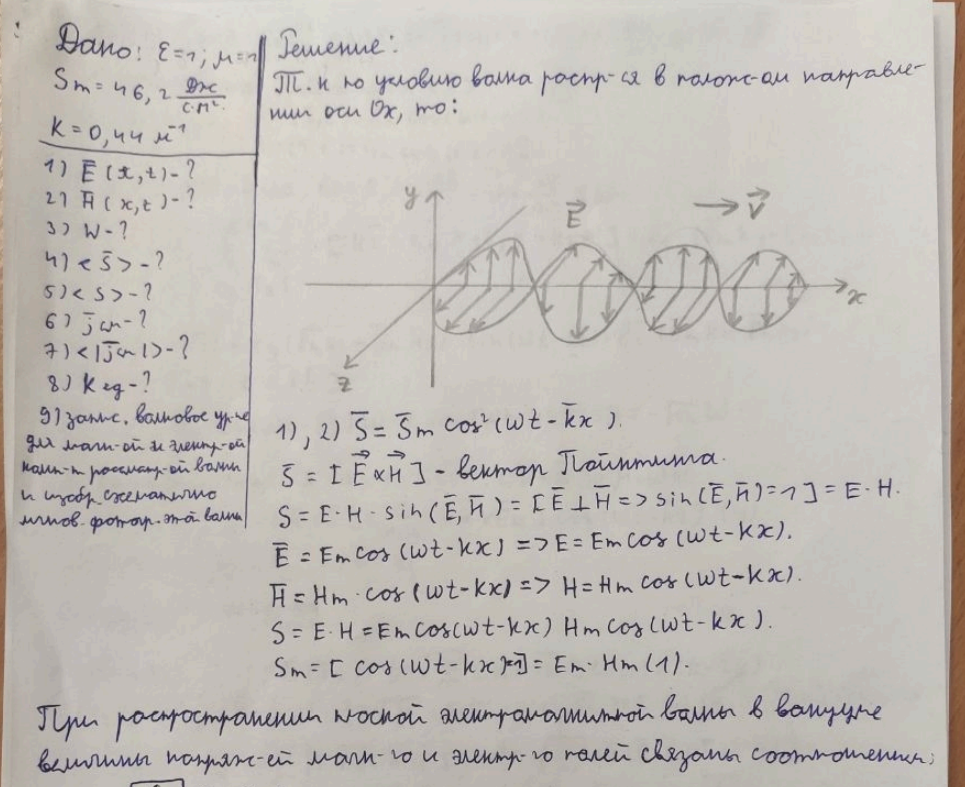 Дано: ε=1; μ=1
Sm = 46,2 Дж/с·м².
K = 0,44 м⁻¹
1) Ē (x,t) - ?
2) H̄ (x,t) - ?
3) W - ?
4) <S̄> - ?
5) <S> - ?
6) j̄см - ?
7) <|j̄см|> - ?
8) Kед - ?
9) запис. волновое ур-е
для магн-ой и электр-ой
комп-т рассматр-ой волны
и изобр. схематично
мгнов. фотогр. этой волны
Решение:
Т.к по условию волна распр-ся в полож-ом направле-
нии оси Ox, то:
y
E⃗
→ V⃗
x
z
1), 2) S̄ = S̄m cos²(ωt - k̄x).
S̄ = [E⃗ × H⃗] - вектор Пойнтинга.
S = E·H·sin(Ē,H̄) = [Ē⊥H̄ => sin(Ē,H̄)=1] = E·H.
Ē = Em cos(ωt-kx) => E = Em cos(ωt-kx).
H̄ = Hm·cos(ωt-kx) => H = Hm cos(ωt-kx).
S = E·H = Em cos(ωt-kx) Hm cos(ωt-kx).
Sm = [cos(ωt-kx)=1] = Em·Hm (1).
При распространении плоской электромагнитной волны в вакууме
величины напряж-ей магн-го и электр-го полей связаны соотношением: